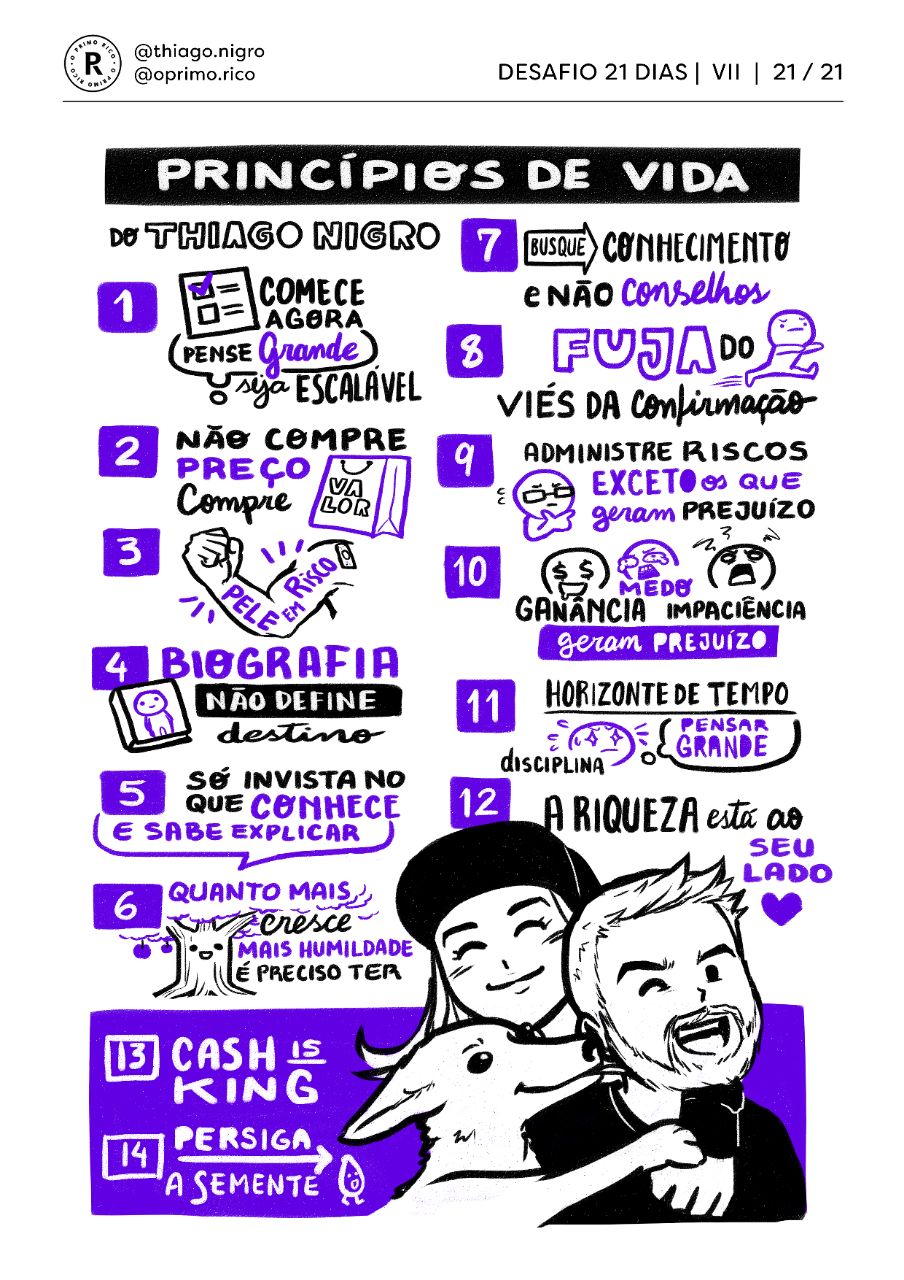 O PRIMO RICO · O PRIMO RICO ·
R
@thiago.nigro
@oprimo.rico
DESAFIO 21 DIAS | VII | 21 / 21
PRINCÍPIOS DE VIDA
DO THIAGO NIGRO
1
COMECE
AGORA
PENSE Grande
seja ESCALÁVEL
2
NÃO COMPRE
PREÇO
Compre
VA
LOR
3
PELE EM RISCO
4
BIOGRAFIA
NÃO DEFINE
destino
5
SÓ INVISTA NO
QUE CONHECE
E SABE EXPLICAR
6
QUANTO MAIS
cresce
MAIS HUMILDADE
É PRECISO TER
7
BUSQUE CONHECIMENTO
e NÃO Conselhos
8
FUJA DO
VIÉS DA Confirmação
9
ADMINISTRE RISCOS
EXCETO os QUE
geram PREJUÍZO
10
MEDO
GANÂNCIA IMPACIÊNCIA
geram PREJUÍZO
11
HORIZONTE DE TEMPO
PENSAR
GRANDE
DISCIPLINA
12
A RIQUEZA está ao
SEU
LADO
13
CASH IS
KING
14
PERSIGA
A SEMENTE